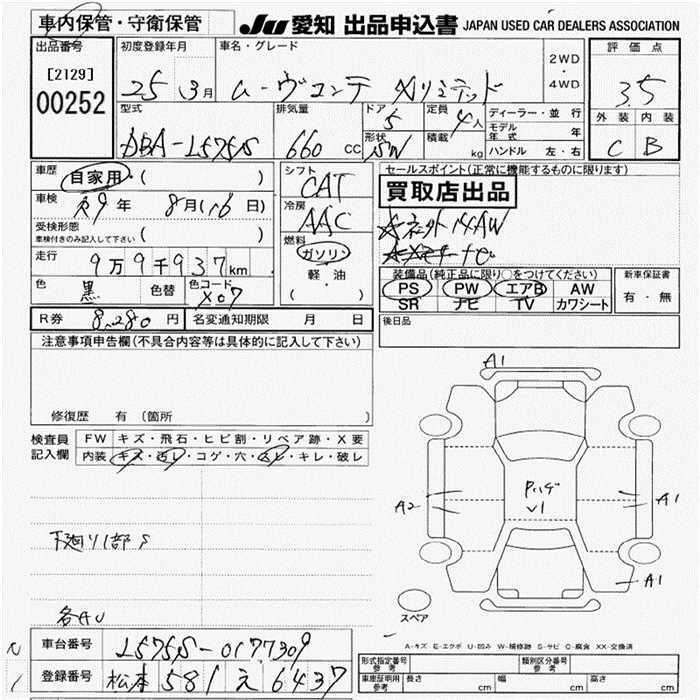 車内保管・守衛保管 JU 愛知 出品申込書 JAPAN USED CAR DEALERS ASSOCIATION
出品番号 初度登録年月 車名・グレード 2WD ・ 4WD 評価点
[2129] 25 3月 ムーヴコンテ Xリミテッド 3.5
00252 型式 排気量 ドア 5 定員 4人 ディーラー・並行 外装 内装
DBA-L575S 660 CC 形状 SW 積載 kg モデル年式 年 C B
ハンドル 左・右
車歴 自家用 ( ) シフト CAT セールスポイント(正常に機能するものに限ります)
車検 R9年 8月(16日) 冷房 AAC 買取店出品
受検形態 車検付きのみ記入して下さい ( ) 燃料 ガソリン 14AW
走行 9万9千937km 軽・油 ナビ
色 黒 色替 色コード X07 ( ) 装備品(純正品に限り○をつけてください) 新車保証書
PS PW エアB AW 有・無
SR ナビ TV カワシート
R券 8,280円 名変通知期限 月 日 後日品
注意事項申告欄(不具合内容等は具体的に記入して下さい)
修復歴 有 (箇所 )
検査員記入欄 FW キズ・飛石・ヒビ割・リペア跡・X要
内装 キズ・汚レ・コゲ・穴・スレ・キレ・破レ
A1
A2 Pハゲ U1 A1
下廻り1部S A1
各AU スペア
A-キズ E-エクボ U-凹み W-補修跡 S-サビ C-腐食 XX-交換済
車台番号 L575S-0177309
登録番号 松本 581 え 6437
形式指定番号 参考 類別区分番号 参考
車庫証明用 参考 長さ cm 幅 cm 高さ cm